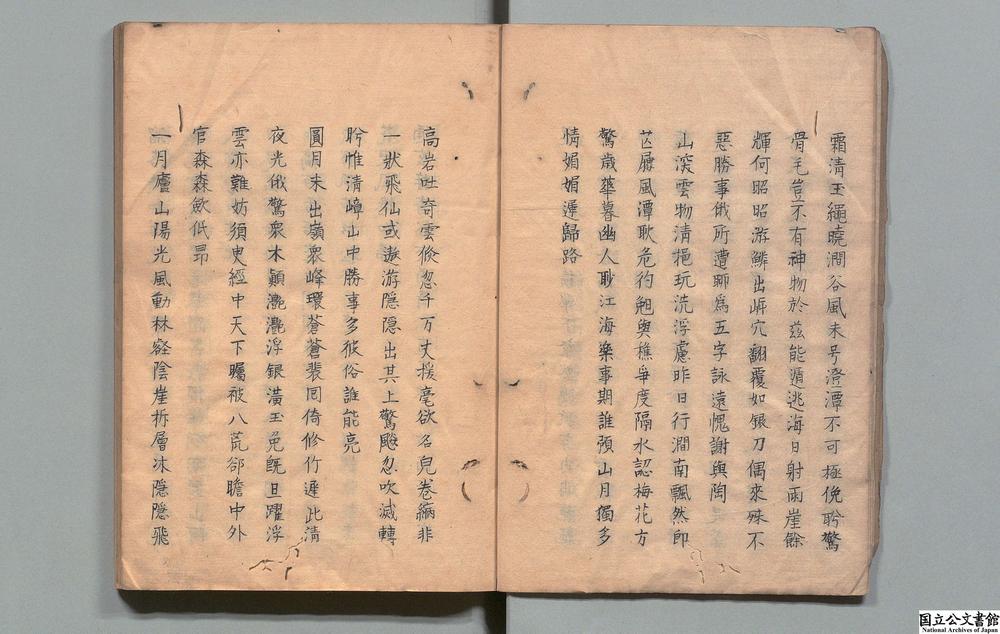 霜清玉繩曉澗谷風未号澄潭不可極俛聆驚
骨毛豈不有神物於茲能遁逃海日射兩崖餘
輝何昭昭游鱗出㟁穴翻覆如銀刀偶來殊不
惡勝事俄所遭聊為五字詠遠愧謝與陶
山深雲物清挹玩洗浮慮昨日行澗南飄然即
芒屨風潭耿危彴兢與樵爭度隔水認梅花方
驚歳華暮幽人耿江海樂事期誰預山月獨多
情媚媚遲歸路
高岩吐奇雲倐忽千万丈援毫欲名皃卷縮非
一狀飛仙或遨游隱隱出其上驚飈忽吹滅轉
盻惟清嶂山中勝事多彼俗誰能亮
圓月未出嶺衆峰環蒼蒼裴囘倚修竹遲此清
夜光俄驚衆木顛灔灔浮銀潢玉兔旣旦躍浮
雲亦難妨須臾經中天下矚被八荒郤瞻中外
官森森歛低昂
一月廬山陽光風動林壑陰崖拆層冰隱隱飛
国立公文書館
National Archives of Japan